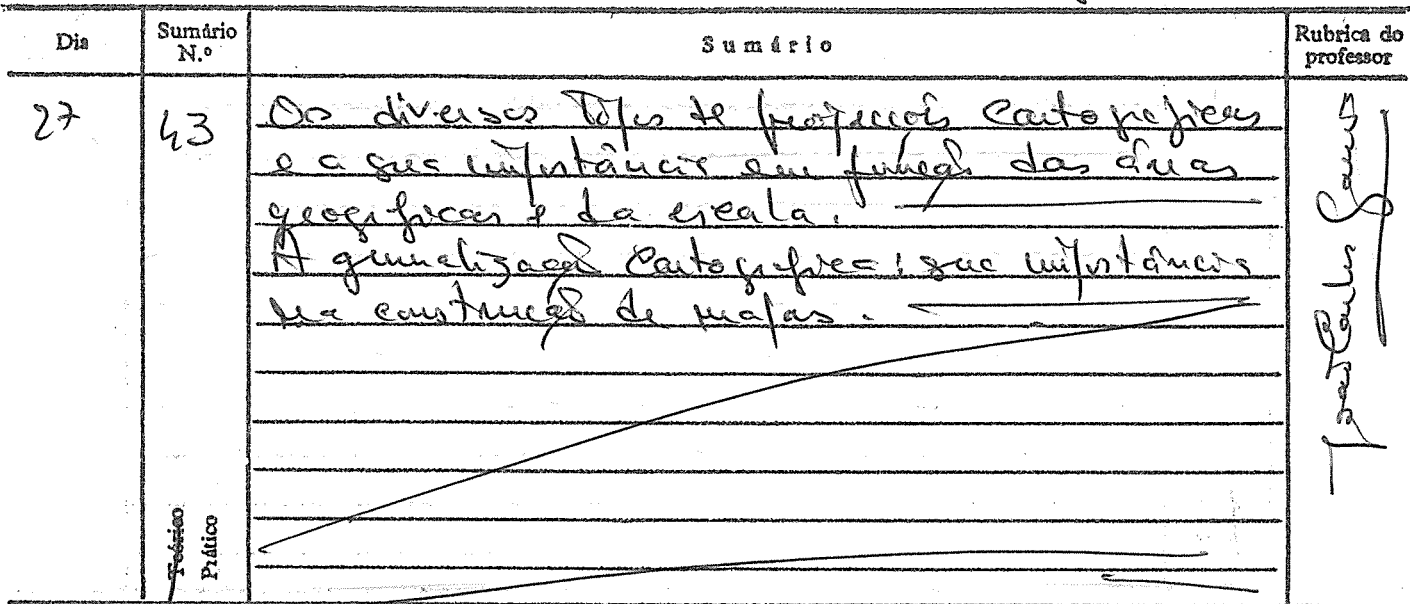 Dia
Sumário N.º
Sumário
Rubrica do professor
27
43
Os diversos Tipos de projecções Cartográficas
e a sua importância em função das áreas
geográficas e da escala.
A generalização Cartográfica: sua importância
na construção de mapas.
João Carlos
Teórico
Prático